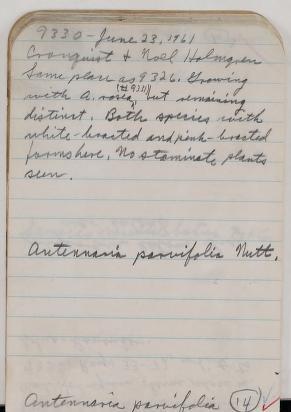 9330 - June 23, 1961
Cronquist & Noel Holmgren
Same place as 9326. Growing
with A. rosea (#9331) but remaining
distinct. Both species with
white-bracted and pink-bracted
forms here. No staminate plants
seen.
Antennaria parvifolia Nutt.
Antennaria parvifolia 14